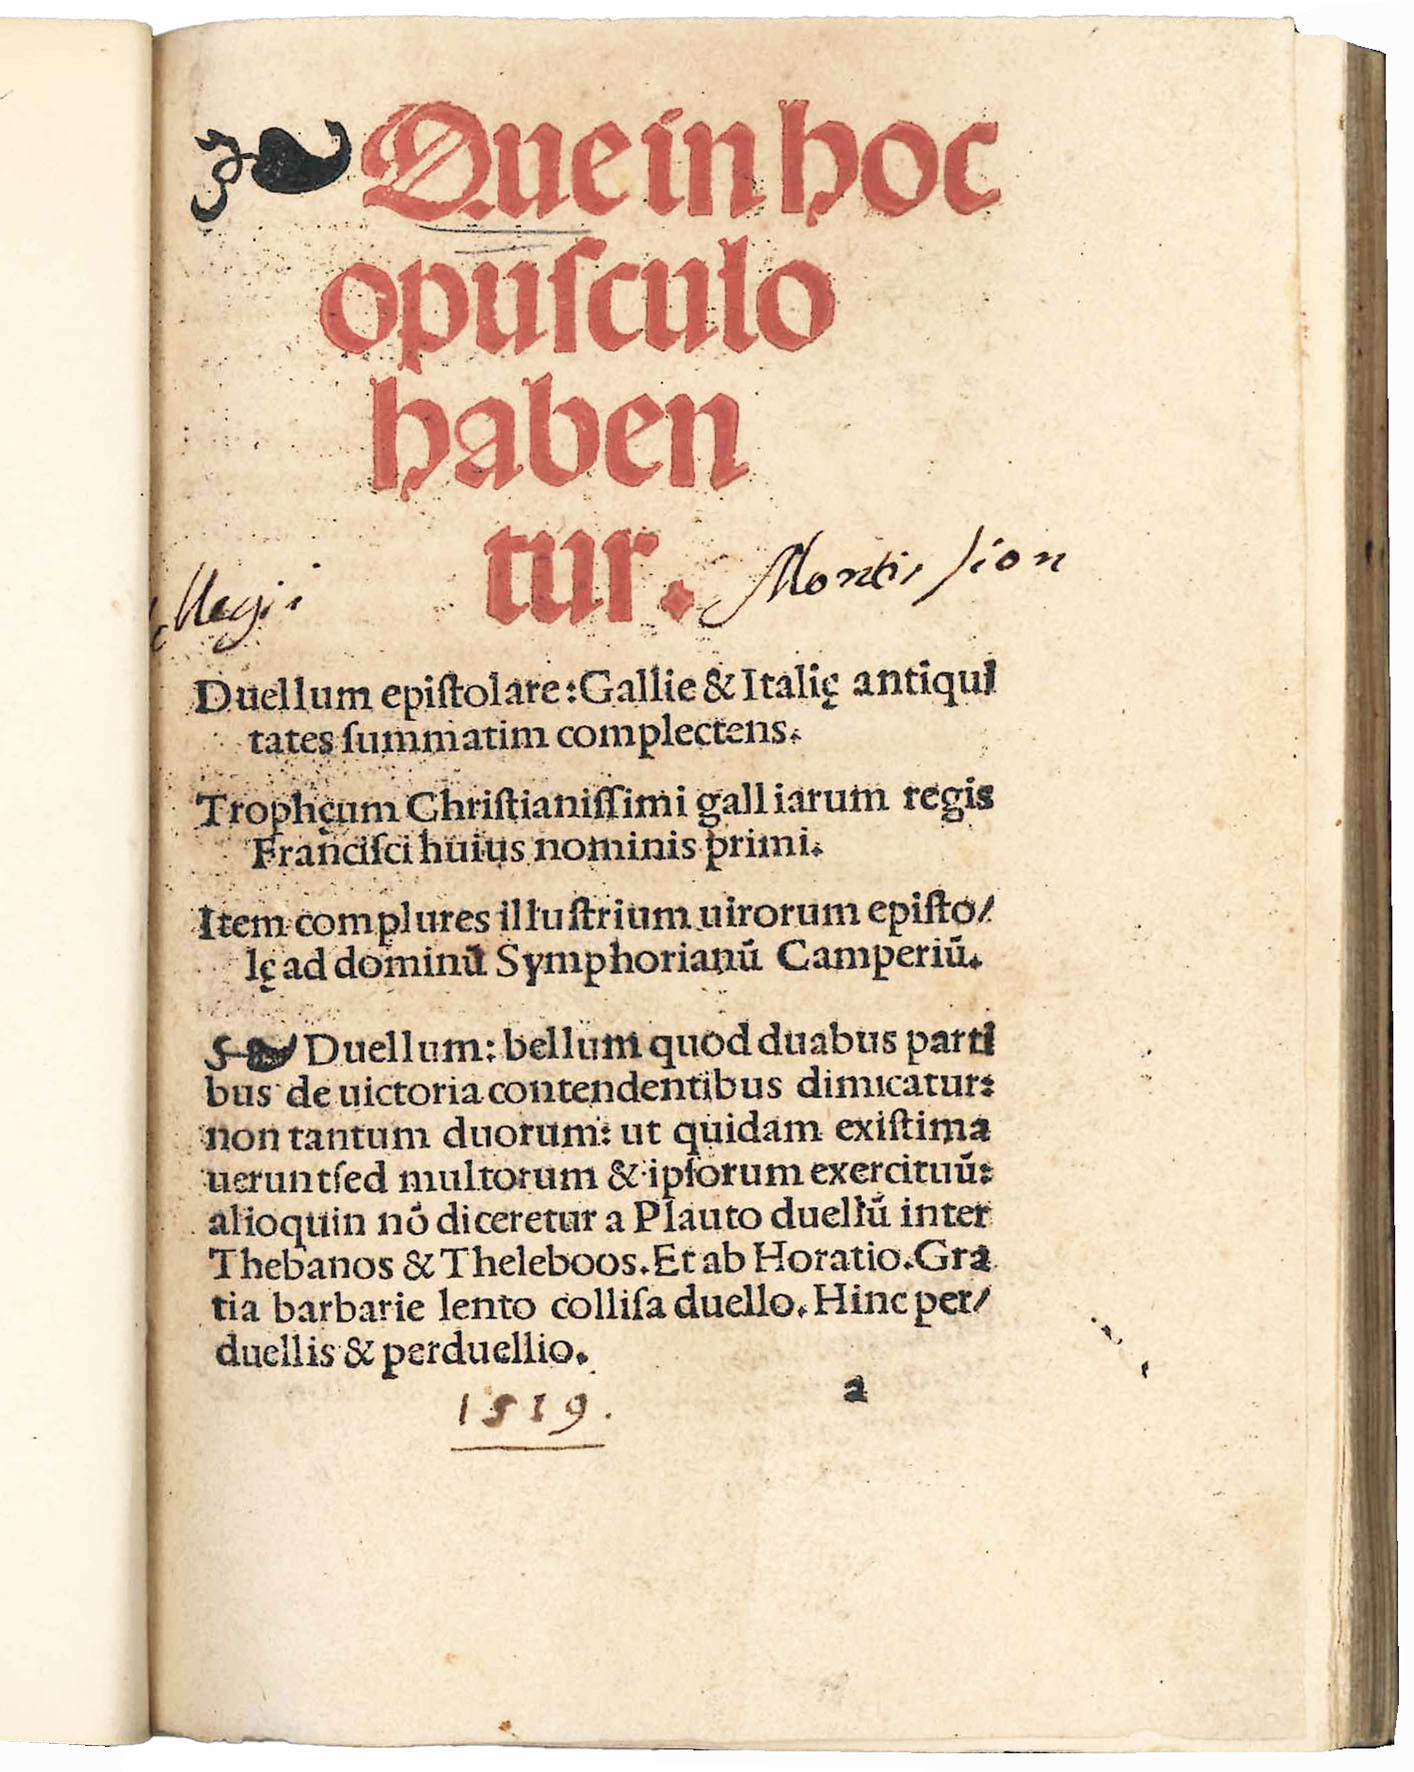 ❧ Que in hoc
opuſculo
haben
tur.
llegii Montis sion
Duellum epiſtolare: Gallie & Italię antiqui
tates ſummatim complectens.
Trophęum Chriſtianiſſimi galliarum regis
Franciſci huius nominis primi.
Item complures illuſtrium uirorum epiſto/
lę ad dominū Symphorianū Camperiū.
❧ Duellum: bellum quod duabus parti
bus de uictoria contendentibus dimicatur:
non tantum duorum: ut quidam exiſtima
uerunt ſed multorum & ipſorum exercituū:
alioquin nō diceretur a Plauto duellū inter
Thebanos & Theleboos. Et ab Horatio. Gra
tia barbarie lento colliſa duello. Hinc per/
duellis & perduellio.
a
1519.